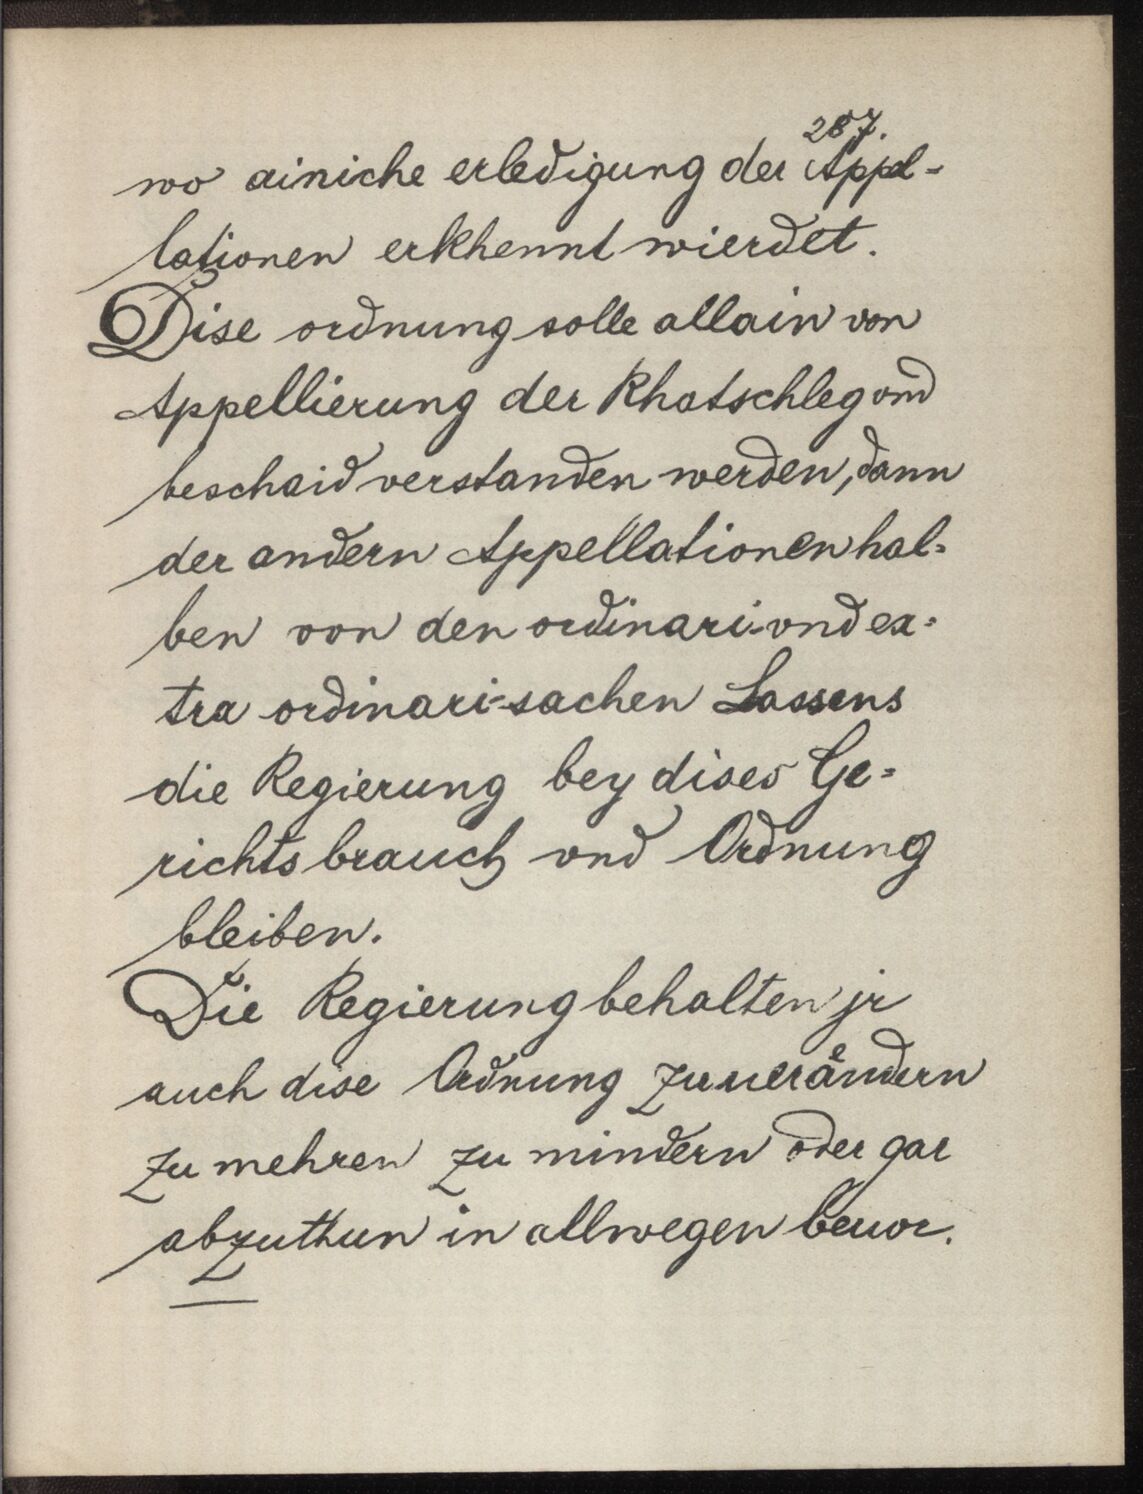 287.
wo ainiche erledigung der Appel-
lationen erkhennt wierdet.
Dise ordnung solle allain von
Appellierung der Rhatschleg vnd
beschaid verstanden werden, dann
der andern Appellationen hal-
ben von den ordinari- vnd ex-
tra ordinari-sachen Lassens
die Regierung bey dises Ge-
richtsbrauch vnd Ordnung
bleiben.
Die Regierung behalten jr
auch dise Ordnung zuuerändern
zu mehren zu mindern oder gar
abzuthun in allwegen beuor.